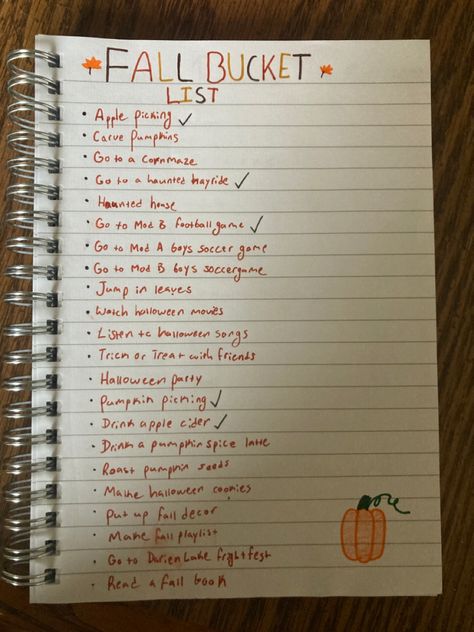 FALL BUCKET
LIST
• Apple picking ✓
• Carve pumpkins
• Go to a cornmaze
• Go to a haunted hayride ✓
• Haunted house
• Go to Mod B football game ✓
• Go to Mod A boys soccer game
• Go to Mod B boys soccergame
• Jump in leaves
• Watch halloween movies
• Listen to halloween songs
• Trick or Treat with friends
• Halloween party
• Pumpkin picking ✓
• Drink apple cider ✓
• Drink a pumpkin spice latte
• Roast pumpkin seeds
• Make halloween cookies
• Put up fall decor
• Make fall playlist
• Go to Darien Lake frightfest
• Read a fall book